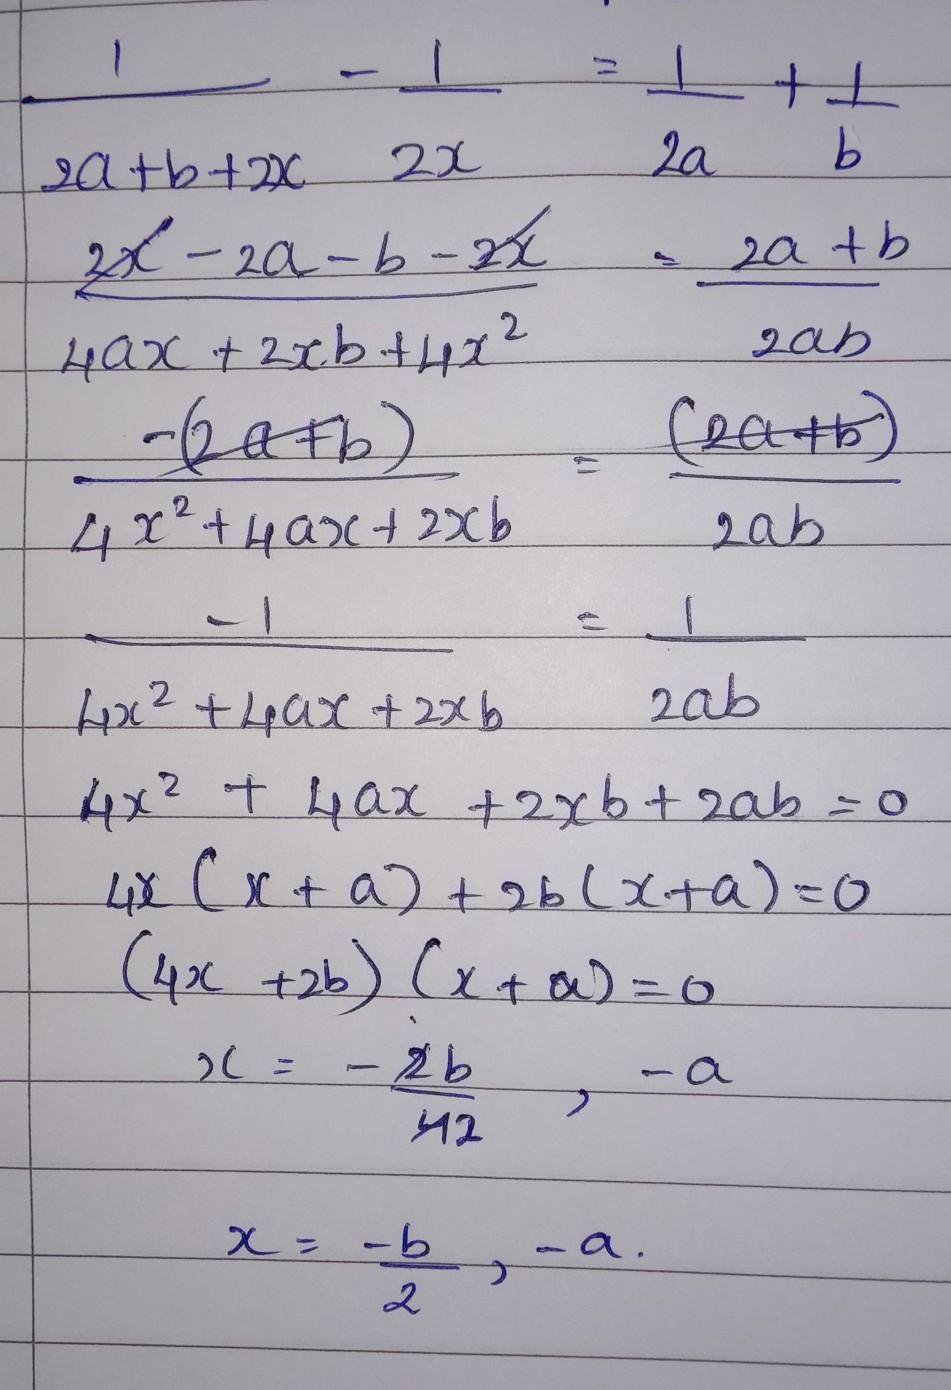 1 - 1 = 1 + 1
2a+b+2x 2x 2a b
2x - 2a - b - 2x = 2a + b
4ax + 2xb + 4x² 2ab
-(2a+b) = (2a+b)
4x² + 4ax + 2xb 2ab
-1 = 1
4x² + 4ax + 2xb 2ab
4x² + 4ax + 2xb + 2ab = 0
4x (x + a) + 2b (x+a) = 0
(4x + 2b) (x + a) = 0
x = - 2b , -a
42
x = -b , -a.
2